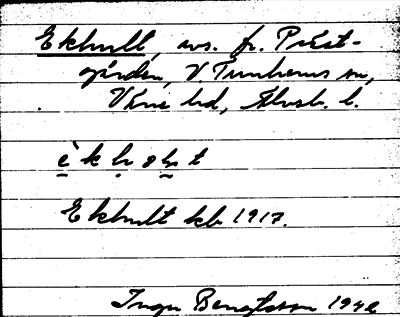 Ekhult, avs. fr. Präst-
gården, V Tunhems sn,
Väne hd, Älvsb. l.
èkhølt
Ekhult kb 1917.
Inga Bengtsson 1942